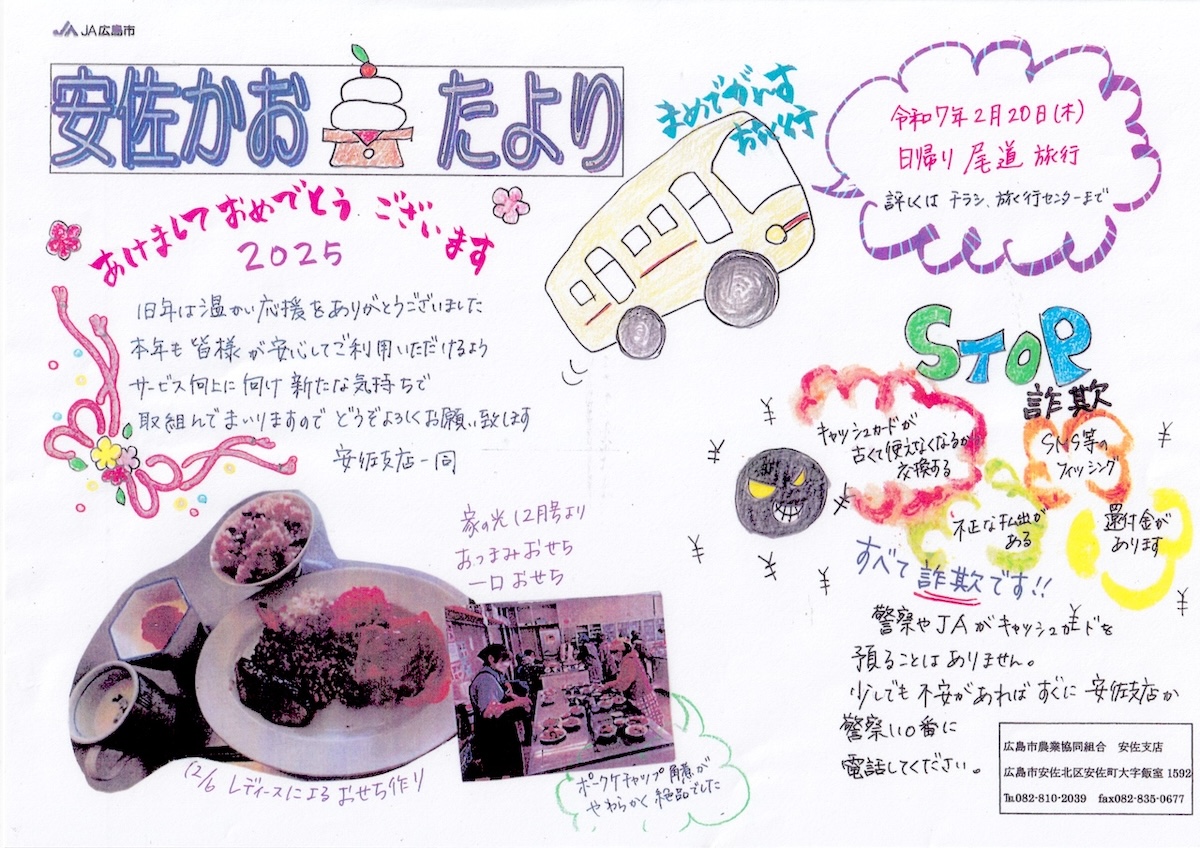 JA広島市
安佐かお たより
あけましておめでとう ございます
2025
旧年は温かい応援をありがとうございました
本年も皆様が安心してご利用いただけるよう
サービス向上に向け新たな気持ちで
取組んでまいりますので どうぞよろしくお願い致します
安佐支店一同
まめでがんす
お旅行
令和7年2月20日(木)
日帰り 尾道 旅行
詳しくは チラシ、旅行センターまで
STOP
詐欺
キャッシュカードが
古くて使えなくなるから
交換する
SNS等の
フィッシング
不正な払出が
ある
還付金が
あります
すべて詐欺です!!
警察やJAがキャッシュカードを
預ることはありません。
少しでも不安があればすぐに安佐支店か
警察110番に
電話してください。
家の光12月号より
おつまみおせち
一口おせち
12/6 レディースによるおせち作り
ポークケチャップ角煮が
やわらかく絶品でした
広島市農業協同組合 安佐支店
広島市安佐北区安佐町大字飯室1592
℡082-810-2039 fax082-835-0677